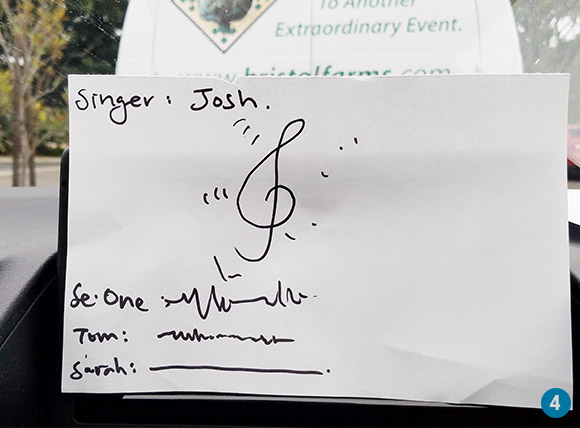 To Another
Extraordinary Event.
www.bristolfarms.com
Singer: Josh.
Se.One:
Tom:
Sarah:
4